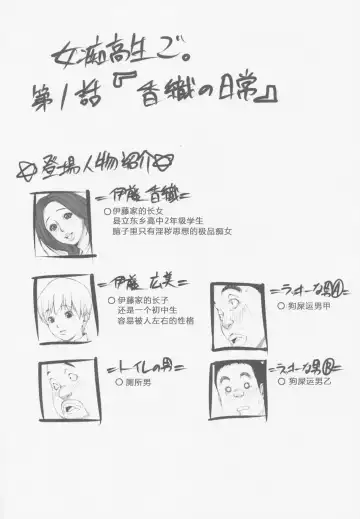 女痴高生ご。
第1話『香織の日常』
☆登場人物紹介☆
=伊藤 香織=
○伊藤家的长女
县立东乡高中2年级学生
脑子里只有淫秽思想的极品痴女
=伊藤 広美=
○伊藤家的长子
还是一个初中生
容易被人左右的性格
=ラッキーな男Ⓐ=
○狗屎运男甲
=トイレの男=
○厕所男
=ラッキーな男Ⓑ=
○狗屎运男乙